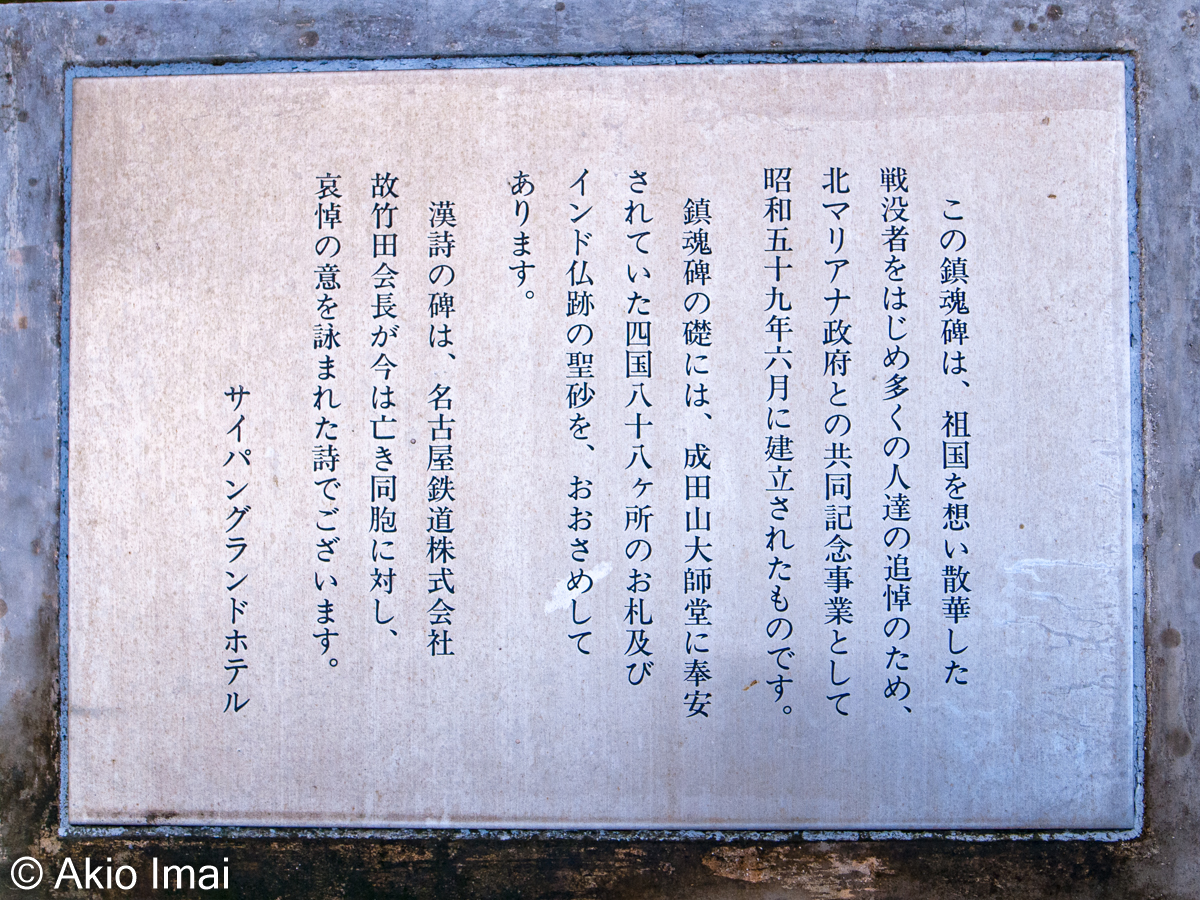 この鎮魂碑は、祖国を想い散華した
戦没者をはじめ多くの人達の追悼のため、
北マリアナ政府との共同記念事業として
昭和五十九年六月に建立されたものです。
鎮魂碑の礎には、成田山大師堂に奉安
されていた四国八十八ヶ所のお札及び
インド仏跡の聖砂を、おおさめして
あります。
漢詩の碑は、名古屋鉄道株式会社
故竹田会長が今は亡き同胞に対し、
哀悼の意を詠まれた詩でございます。
サイパングランドホテル
© Akio Imai